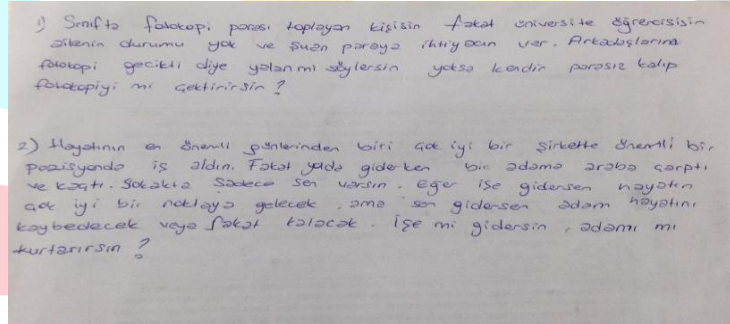 1) Sınıfta fotokopi parası toplayan kişisin fakat üniversite öğrencisisin
ailenin durumu yok ve şuan paraya ihtiyacın var. Arkadaşlarına
fotokopi gecikti diye yalan mı söylersin yoksa kendin parasız kalıp
fotokopiyi mi çektirirsin?
2) Hayatının en önemli günlerinden biri çok iyi bir şirkette önemli bir
pozisyonda iş aldın. Fakat yolda giderken bir adama araba çarptı
ve kaçtı. Sokakta sadece sen varsın. eğer işe gidersen hayatın
çok iyi bir noktaya gelecek, ama sen gidersen adam hayatını
kaybedecek veya sakat kalacak. İşe mi gidersin, adamı mı
kurtarırsın?